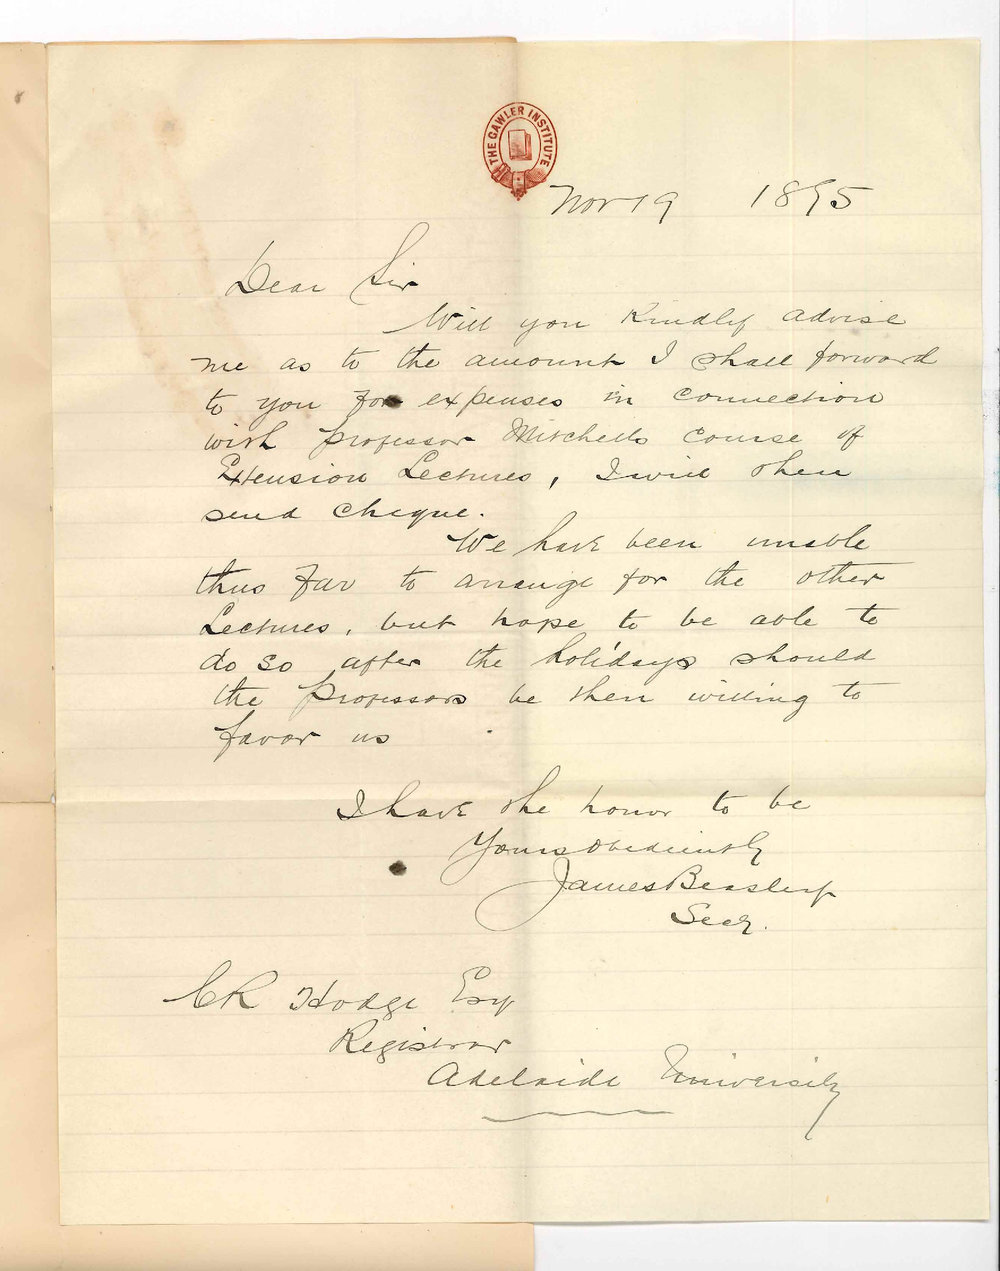 THE GAWLER INSTITUTE
Nov 19 1895
Dear Sir
Will you Kindly advise
me as to the amount I shall forward
to you for expenses in connection
with professor Mitchells course of
Extension Lectures, I will then
send cheque.
We have been unable
thus far to arrange for the other
Lectures, but hope to be able to
do so after the holidays should
the professors be then willing to
favor us
I have the honor to be
Yours obediently
James Beasley
Secy.
CR Hodge Esq
Registrar
Adelaide University